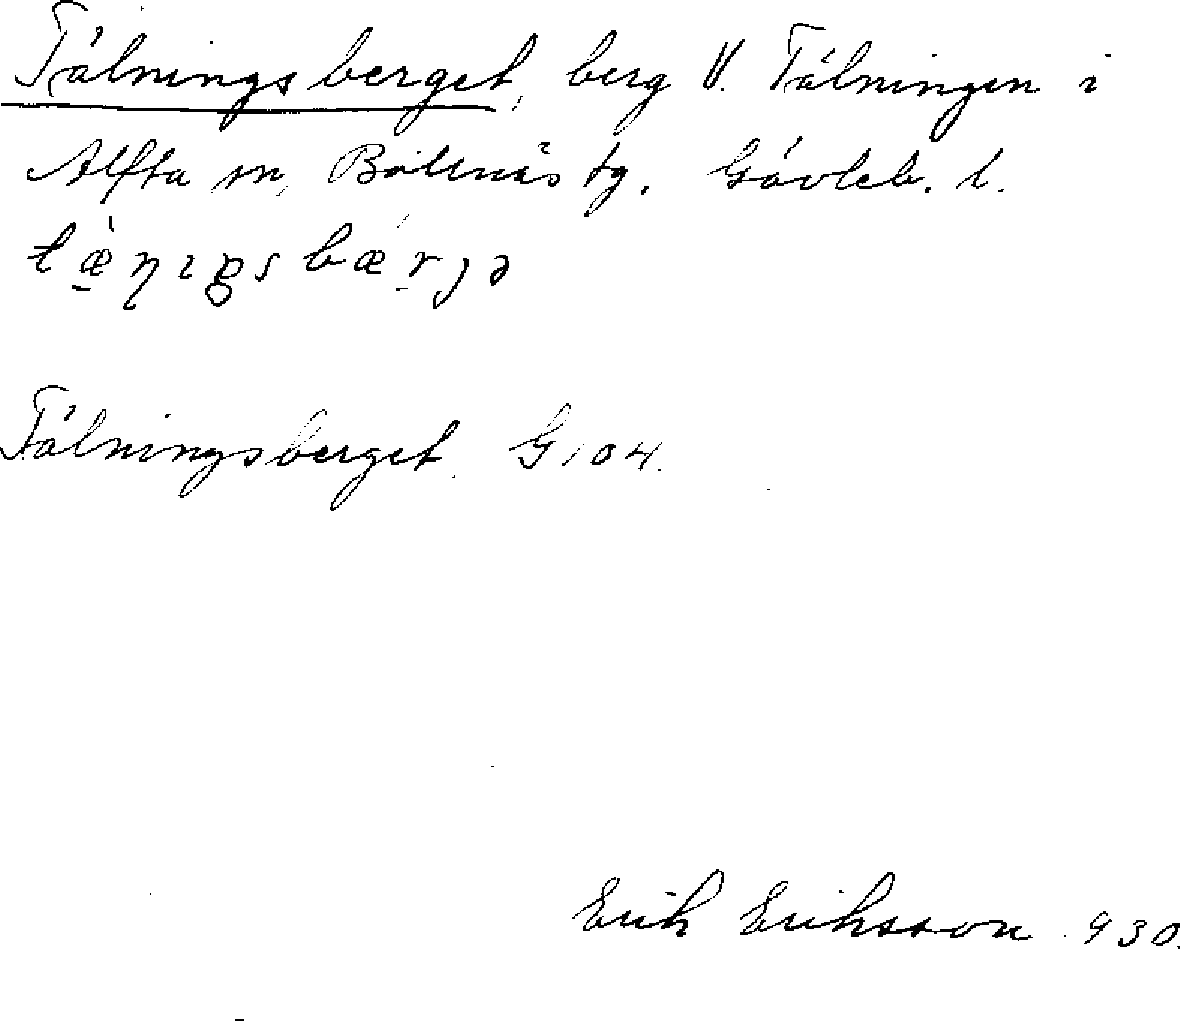 Tälningsberget, berg V. Tälningen i
Alfta sn, Bollnäs tg. Gävleb. l.
Tälningsberget. G 104.
Erik Eriksson 930.